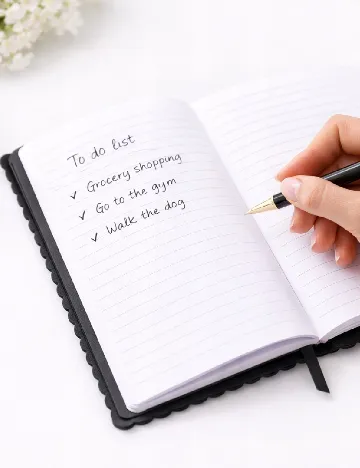 To do list
✓ Grocery shopping
✓ Go to the gym
✓ Walk the dog